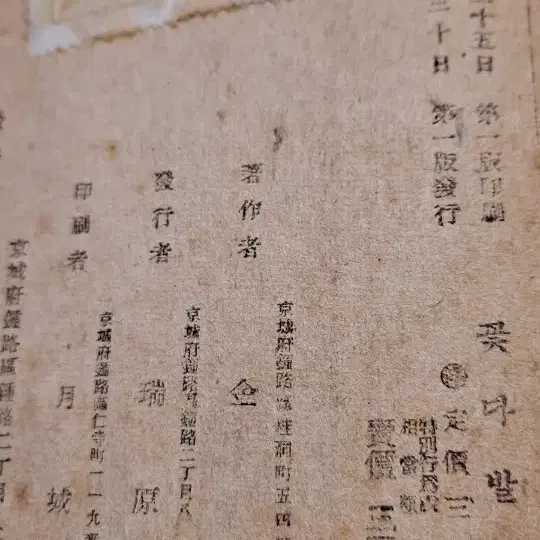 二十五日 第一版印刷
三十日 第一版發行
꽃다발
定價 三
特別行爲稅
相當額
賣價 三
京城府鍾路區桂洞町五四
著作者 金
京城府鍾路區鍾路二丁目八
發行者 瑞原
京城府鍾路區仁寺町一一九
印刷者 月城
京城府鍾路區鍾路二丁目